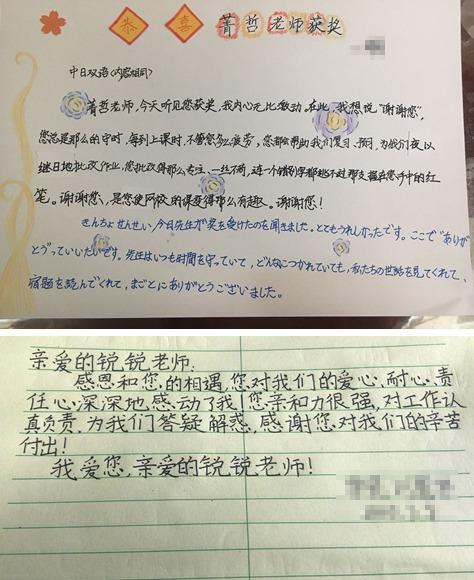 恭喜菁哲老师获奖
中日双语(内容相同)
菁哲老师,今天听见您获奖,我内心无比激动。在此,我想说“谢谢您”,
您总是那么的守时,每到上课时,不管您多么疲劳,您都帮助我们复习、预习,为我们夜以
继日地批改作业,您批改得那么专注、一丝不苟,连一个错别字都逃不过那支握在您手中的红
笔。谢谢您、是您使网校的课变得那么有趣。谢谢您!
きんちょせんせい,今日先生が奖を受けたのを闻きました。とてもうれしかったです。ここで“ありが
とう”っていいたいです。先生はいつも时间を守っていて,どんなにつかれていても,私たちの世话を见てくれて、
宿题を読んでくれて,まごとにありがとうございました。
亲爱的锐锐老师:
感恩和您的相遇,您对我们的爱心、耐心、责
任心深深地感动了我!您亲和力很强,对工作认
真负责,为我们答疑解惑,感谢您对我们的辛苦
付出!
我爱您,亲爱的锐锐老师!